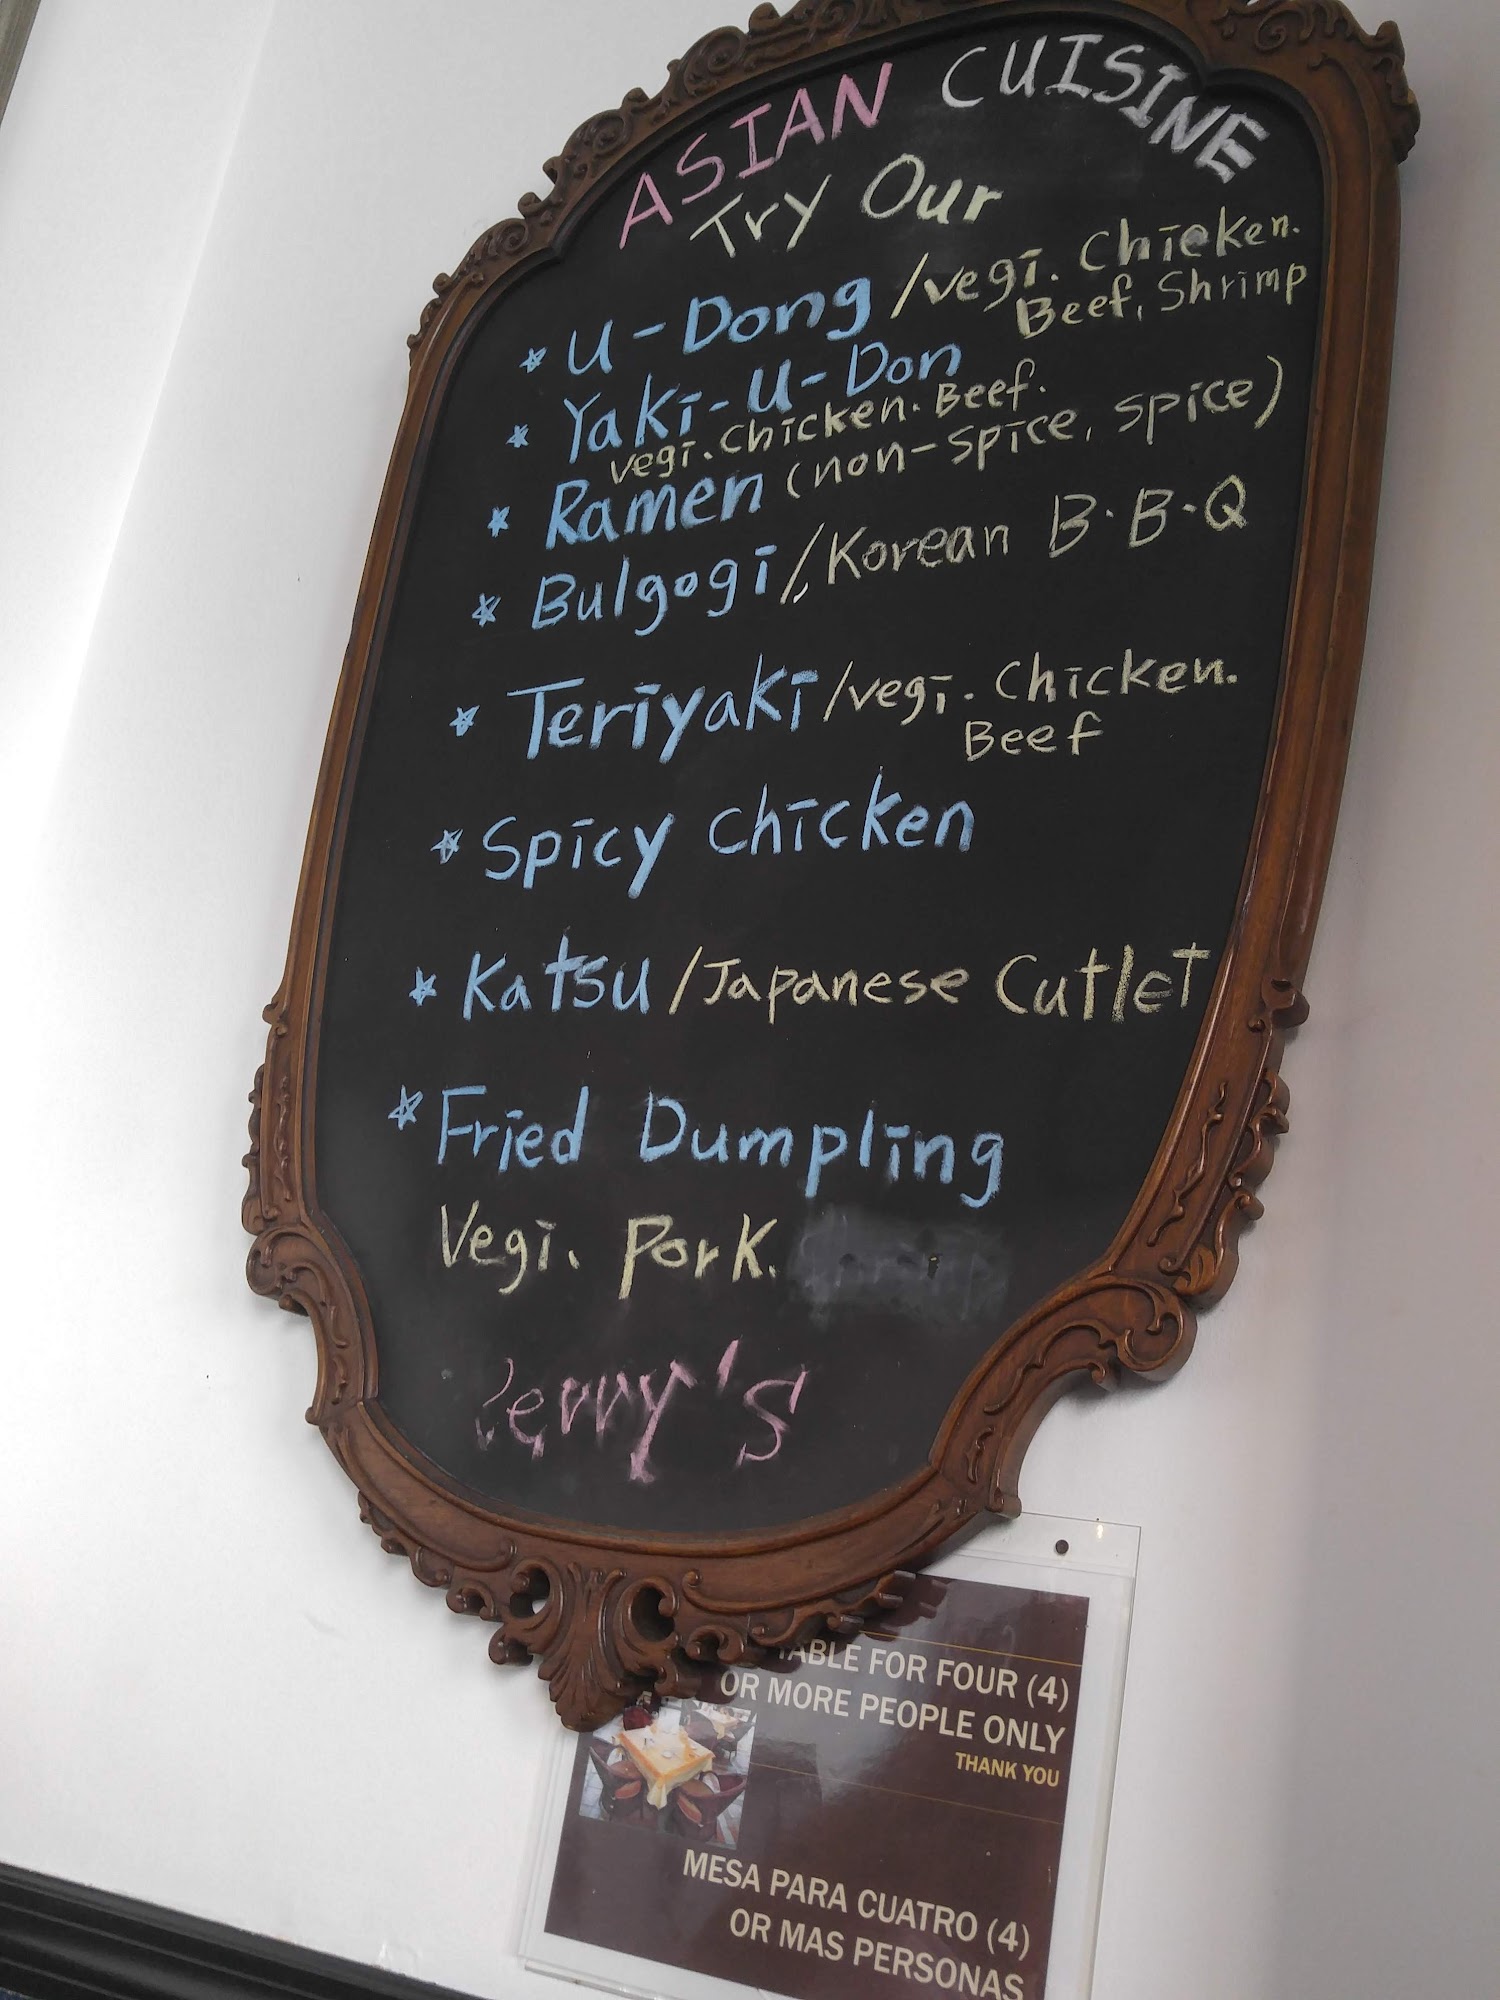 ASIAN CUISINE
Try Our
* U-Dong /vegi. Chicken.
Beef, Shrimp
* Yaki-U-Don
vegi. chicken. Beef.
* Ramen (non-spice, spice)
* Bulgogi/Korean B.B.Q
* Teriyaki/vegi. Chicken.
Beef
* Spicy chicken
* Katsu /Japanese CutleT
* Fried Dumpling
Vegi. Pork.
TABLE FOR FOUR (4)
OR MORE PEOPLE ONLY
THANK YOU
MESA PARA CUATRO (4)
OR MAS PERSONAS